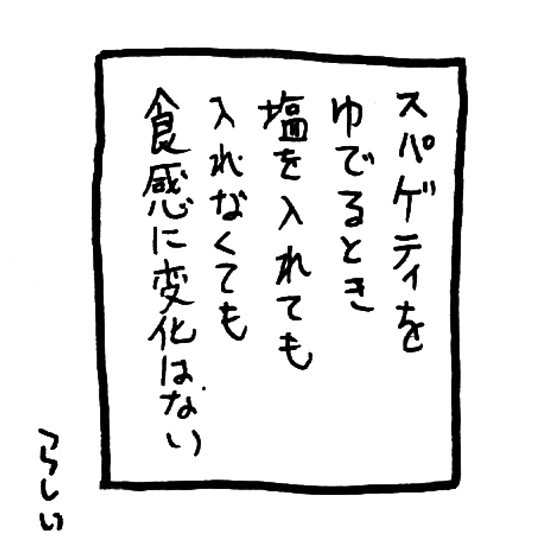 スパゲティを
ゆでるとき
塩を入れても
入れなくても
食感に変化はない
つらしい